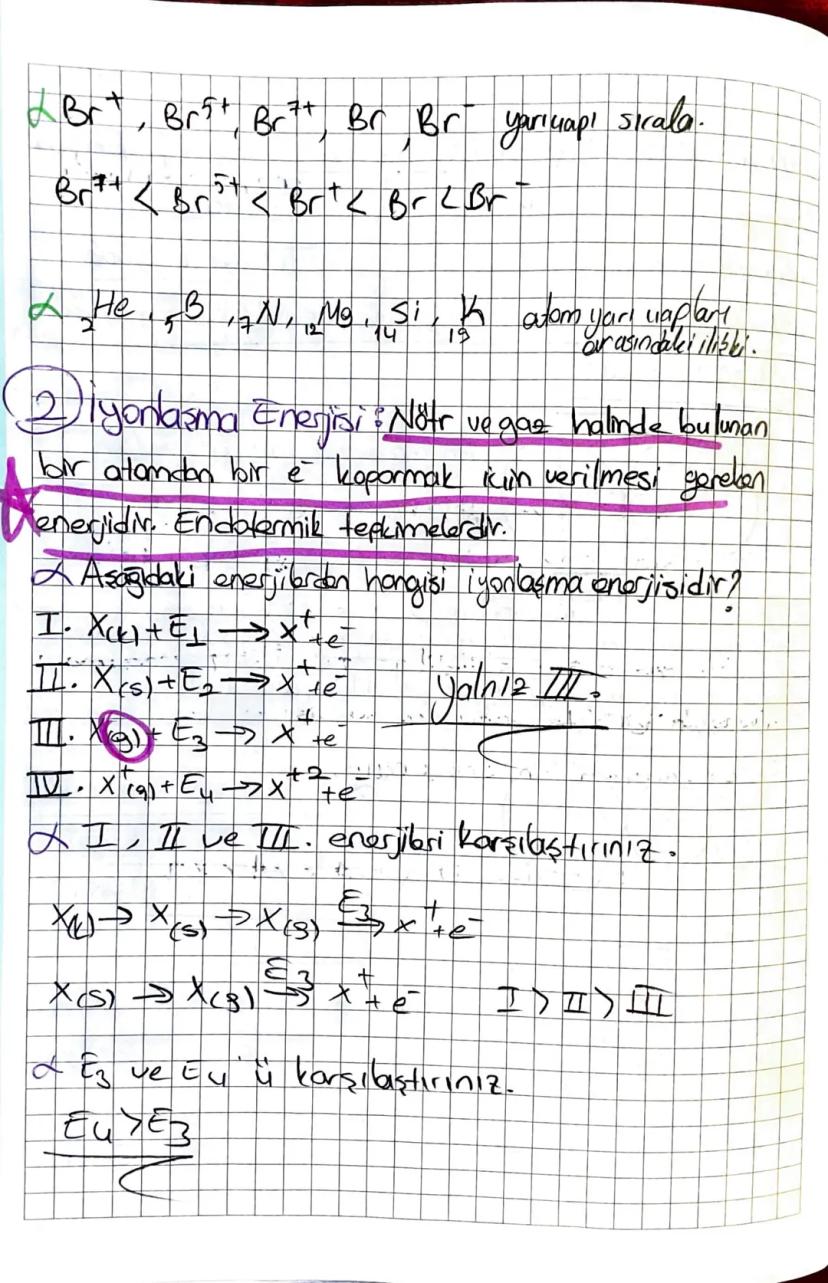 α Br⁺, Br⁵⁺, Br⁷⁺, Br, Br⁻ yarıçapı sırala.
Br⁷⁺ < Br⁵⁺ < Br⁺ < Br < Br⁻
α ₂He, ₅B, ₇N, ₁₂Mg, ₁₄Si, ₁₉K atom yarı çapları
arasındaki ilişki.
② İyonlaşma Enerjisi: Nötr ve gaz halinde bulunan
bir atomdan bir e⁻ koparmak için verilmesi gereken
enerjidir. Endotermik tepkimelerdir.
α Aşağıdaki enerjilerden hangisi iyonlaşma enerjisidir?
I. X(k) + E₁ → X⁺ + e⁻
II. X(s) + E₂ → X⁺ + e⁻ yalnız III.
III. X(g) + E₃ → X⁺ + e⁻
IV. X⁺(g) + E₄ → X⁺² + e⁻
α I, II ve III. enerjileri karşılaştırınız.
X(k) → X(s) → X(g) E₃→ X⁺ + e⁻
X(s) → X(g) E₃→ X⁺ + e⁻ I > II > III
α E₃ ve E₄'ü karşılaştırınız.
E₄ > E₃